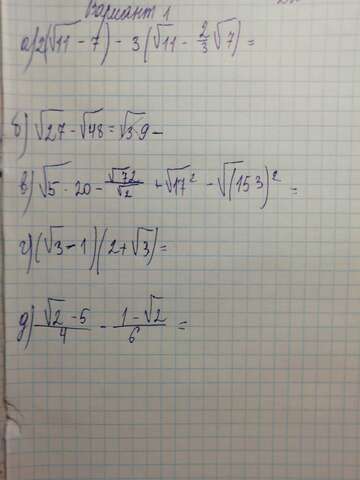 Вариант 1
а) 2(√11 - 7) - 3(√11 - 2/3 √7) =
б) √27 - √48 = √3·9 -
в) √5 · 20 - √72/√2 + √17² - √(153)² =
г) (√3 - 1)(2 + √3) =
д) (√2 - 5)/4 - (1 - √2)/6 =